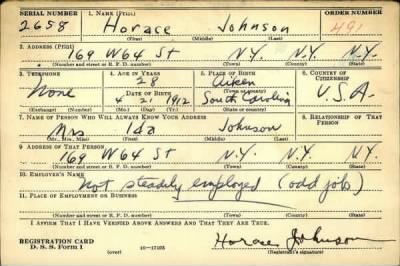 SERIAL NUMBER 1. NAME (Print) ORDER NUMBER
2658 Horace Johnson 491
(First) (Middle) (Last)
2. ADDRESS (Print)
169 W 64 St N.Y. N.Y. N.Y.
(Number and street or R. F. D. number) (Town) (County) (State)
3. TELEPHONE 4. AGE IN YEARS 5. PLACE OF BIRTH 6. COUNTRY OF CITIZENSHIP
none 28 Aiken
DATE OF BIRTH (Town or county)
4 21 1912 South Carolina U.S.A.
(Exchange) (Number) (Mo.) (Day) (Yr.) (State or country)
7. NAME OF PERSON WHO WILL ALWAYS KNOW YOUR ADDRESS 8. RELATIONSHIP OF THAT PERSON
Mrs Ida Johnson
(Mr., Mrs., Miss) (First) (Middle) (Last)
9. ADDRESS OF THAT PERSON
169 W 64 St N.Y. N.Y. N.Y.
(Number and street or R. F. D. number) (Town) (County) (State)
10. EMPLOYER'S NAME
Not steadily employed (odd jobs)
11. PLACE OF EMPLOYMENT OR BUSINESS
(Number and street or R. F. D. number) (Town) (County) (State)
I AFFIRM THAT I HAVE VERIFIED ABOVE ANSWERS AND THAT THEY ARE TRUE.
REGISTRATION CARD
D. S. S. Form 1 (over) 16—17105 Horace Johnson
(Registrant's signature)